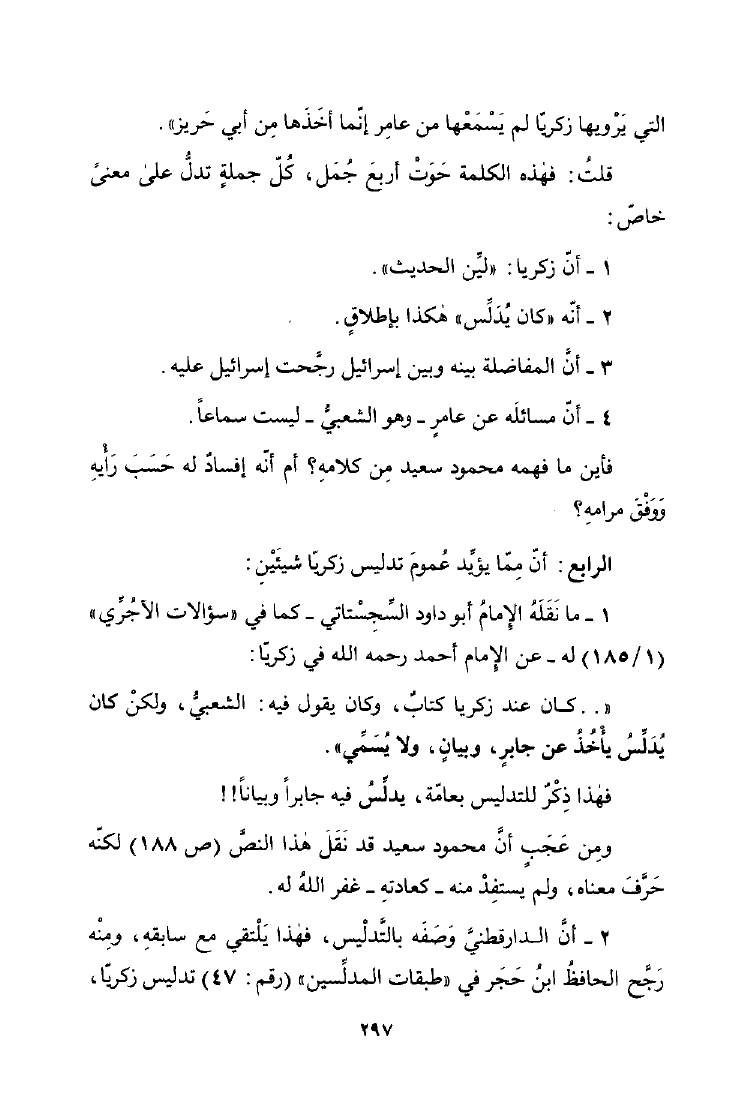 التي يَرْويها زكريّا لم يَسْمَعْها من عامِر إنّما أخَذَها مِن أبي حَريز».
قلتُ: فهٰذه الكلمة حَوَتْ أربعَ جُمَل، كُلّ جملةٍ تدلُّ علىٰ معنىً
خاصّ:
١ ـ أنّ زكريا: «ليِّن الحديث».
٢ ـ أنّه «كان يُدَلِّس» هٰكذا بإطلاقٍ.
٣ ـ أنَّ المفاضلة بينه وبين إسرائيل رجَّحت إسرائيل عليه.
٤ ـ أنّ مسائلَه عن عامرٍ ـ وهو الشعبيُّ ـ ليست سماعاً.
فأين ما فهمه محمود سعيد مِن كلامهِ؟ أم أنّه إفسادٌ له حَسَبَ رَأْيهِ
وَوَفْقَ مرامهِ؟
الرابع: أنّ مِمّا يؤيِّد عُمومَ تدليس زكريّا شيئَيْنِ:
١ ـ ما نَقَلَهُ الإمامُ أبو داود السِّجِسْتاتي ـ كما في «سؤالات الآجُرِّي»
(١/١٨٥) له ـ عن الإمام أحمد رحمه الله في زكريّا:
«.. كـان عند زكريا كتابٌ، وكان يقول فيه: الشعبيُّ، ولكنْ كان
يُدَلِّسُ يأْخُذُ عن جابرٍ، وبيانٍ، ولا يُسَمِّي».
فهٰذا ذِكْرٌ للتدليس بعامّة، يدلِّسُ فيه جابراً وبياناً!!
ومِن عَجَبٍ أنَّ محمود سعيد قد نَقَلَ هٰذا النصَّ (ص ١٨٨) لكنّه
حَرَّفَ معناه، ولم يستفِدْ منه ـ كعادتهِ ـ غفر اللهُ له.
٢ ـ أنَّ الـدارقطنيَّ وَصَفَه بالتَّدلْيس، فهٰذا يَلْتقي مع سابقهِ، ومِنْه
رَجَّح الحافظُ ابنُ حَجَر في «طبقات المدلِّسين» (رقم: ٤٧) تدليس زكريّا،
٢٩٧